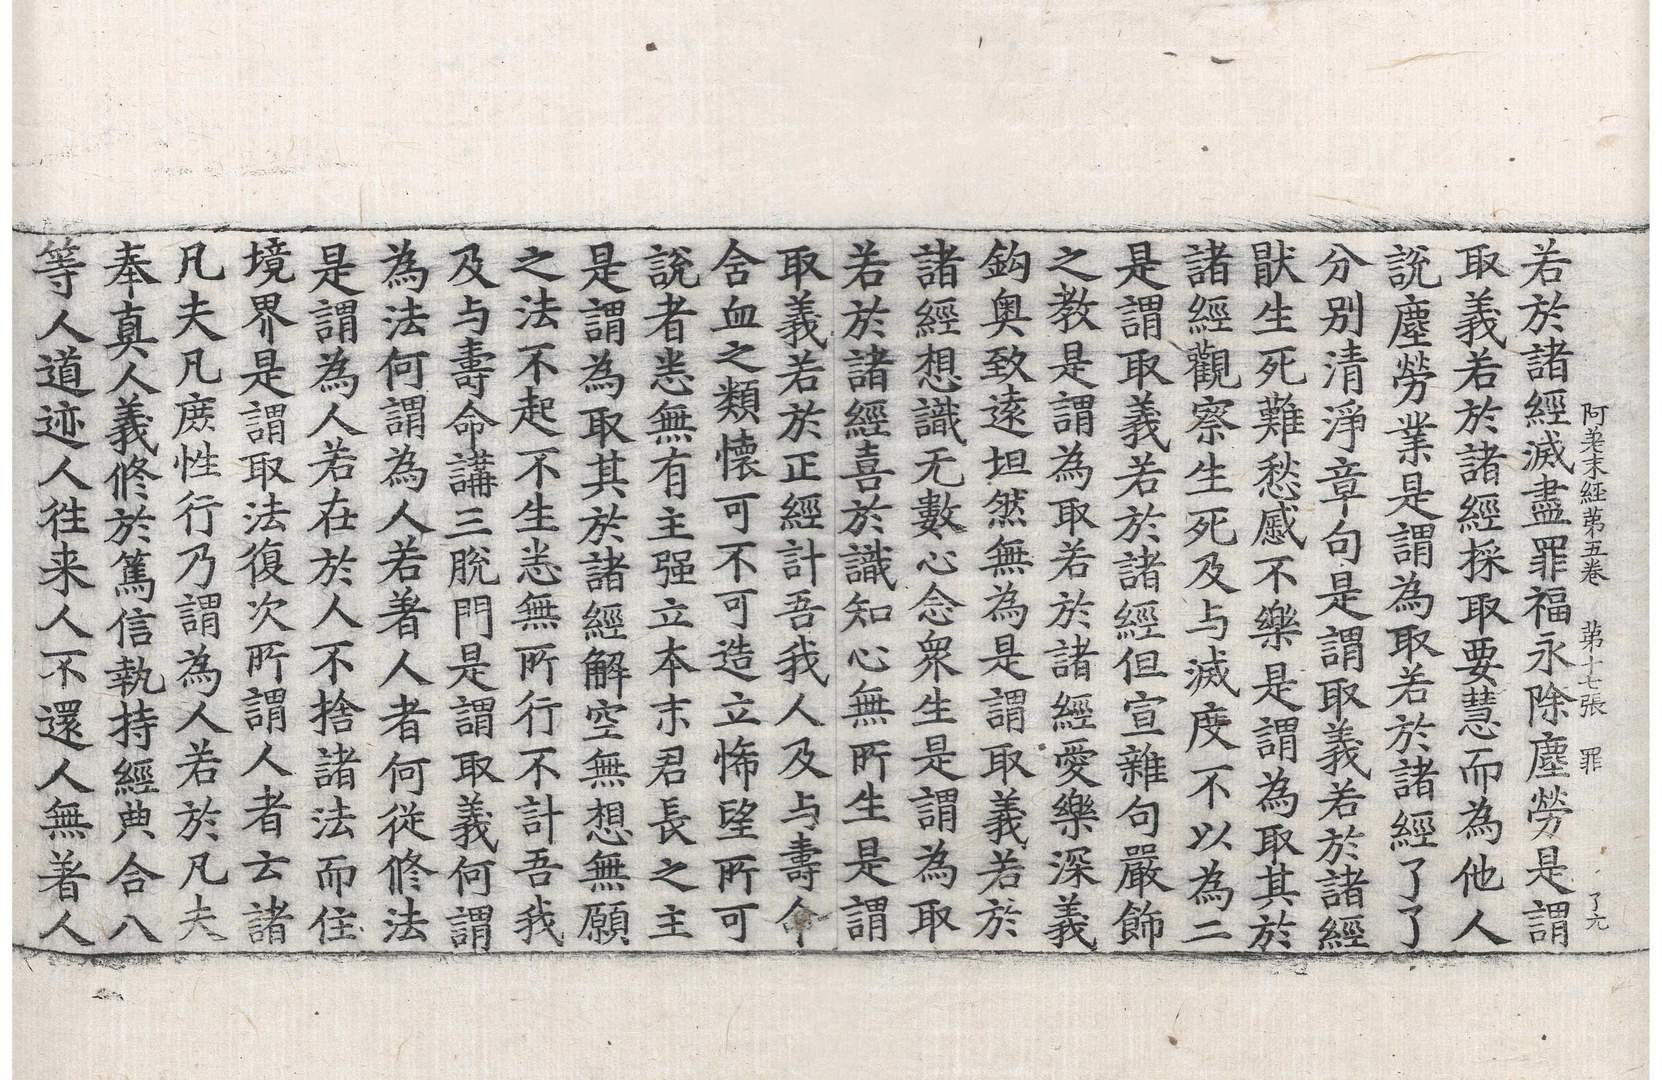 阿差末經第五卷　第十七張　罪　了元
若於諸經滅盡罪福永除塵勞是謂
取義若於諸經採取要慧而為他人
說塵勞業是謂為取若於諸經了了
分別清淨章句是謂取義若於諸經
猒生死難愁慼不樂是謂為取其於
諸經觀察生死及与滅度不以為二
是謂取義若於諸經但宣雜句嚴飾
之教是謂為取若於諸經愛樂深義
鈎奧致遠坦然無為是謂取義若於
諸經想識无數心念衆生是謂為取
若於諸經喜於識知心無所生是謂
取義若於正經計吾我人及与壽命
含血之類懷可不可造立悕望所可
說者恙無有主强立本末君長之主
是謂為取其於諸經解空無想無願
之法不起不生恙無所行不計吾我
及与壽命講三脫門是謂取義何謂
為法何謂為人若著人者何從修法
是謂為人若在於人不捨諸法而住
境界是謂取法復次所謂人者云諸
凡夫凡庶性行乃謂為人若於凡夫
奉真人義修於篤信執持經典合八
等人道迹人徃来人不還人無著人